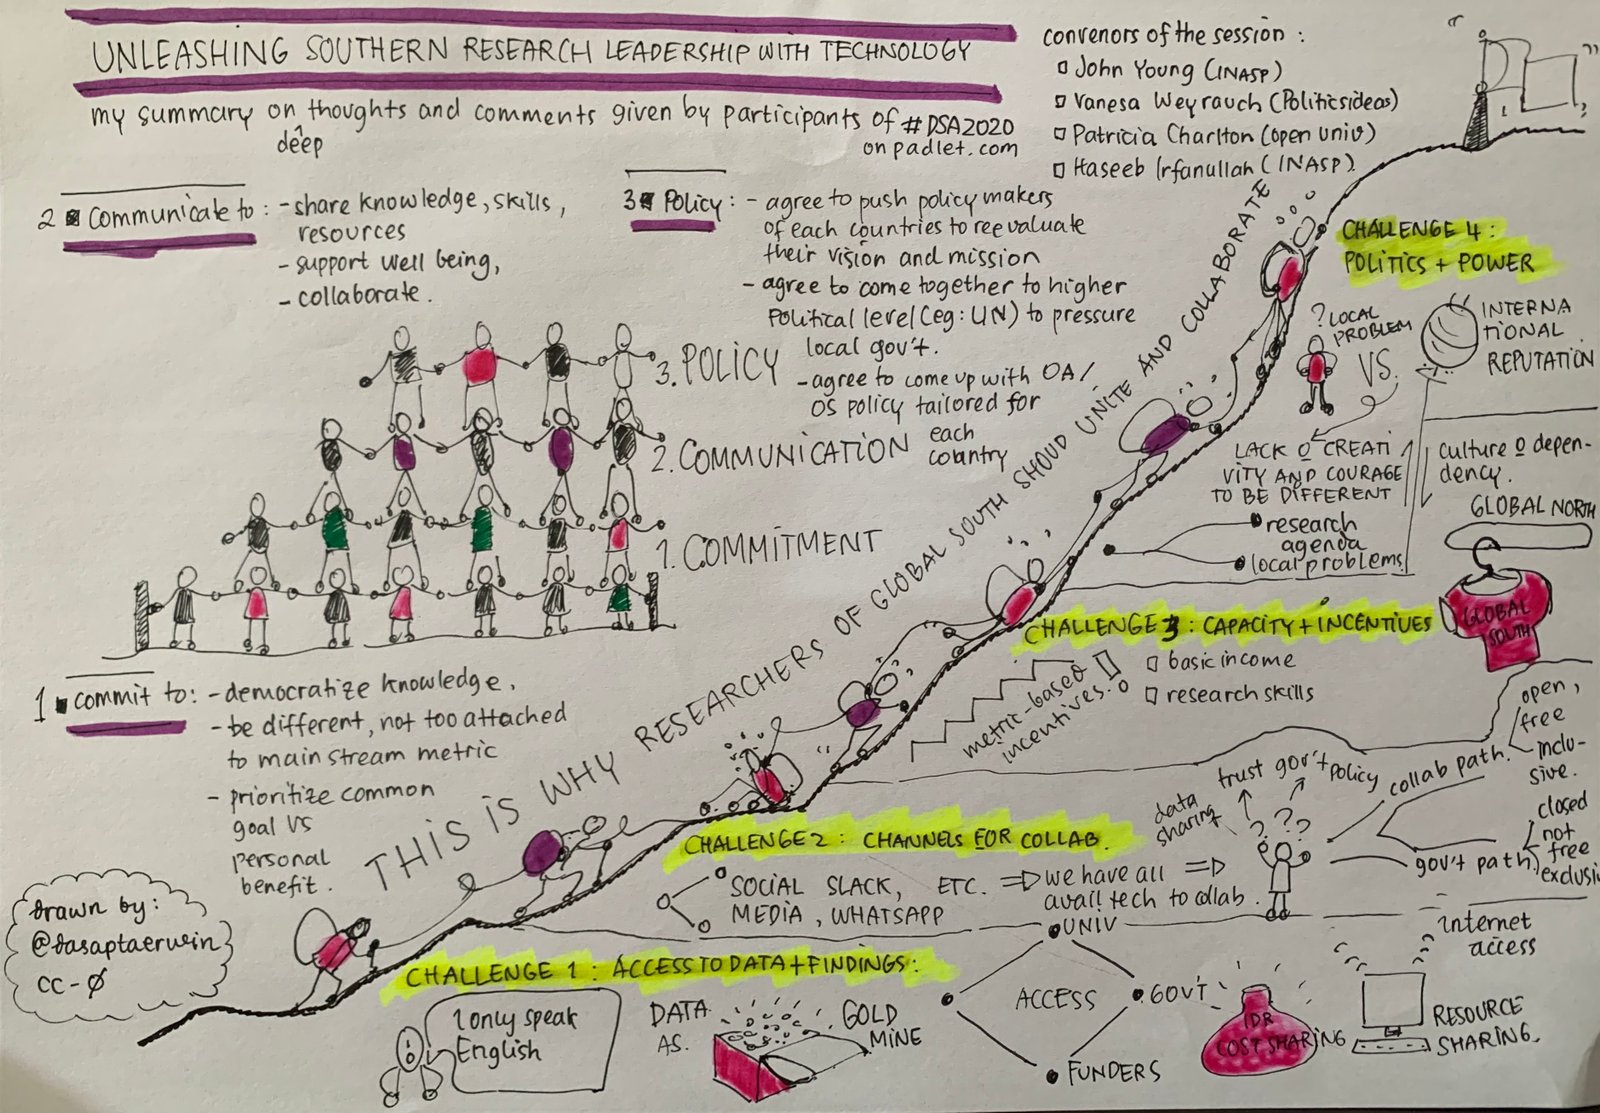 UNLEASHING SOUTHERN RESEARCH LEADERSHIP WITH TECHNOLOGY
my summary on thoughts and comments given by participants of #DSA2020
deep
on padlet.com
convenors of the session :
John Young (INASP)
Vanesa Weyrauch (Politicsideas)
Patricia Charlton (open univ)
Haseeb Irfanullah (INASP).
2 Communicate to : - share knowledge, skills,
resources
- support well being,
- collaborate.
3 Policy : - agree to push policy makers
of each countries to reevaluate
their vision and mission
- agree to come together to higher
Political level (eg: UN) to pressure
local gov't.
- agree to come up with OA/
OS policy tailored for
each
country
3. POLICY
2. COMMUNICATION
1. COMMITMENT
1 commit to: - democratize knowledge,
- be different, not too attached
to main stream metric
- prioritize common
goal vs
personal
benefit.
THIS IS WHY RESEARCHERS OF GLOBAL SOUTH SHOULD UNITE AND COLLABORATE
drawn by:
@dasaptaerwin
CC-0
CHALLENGE 4 :
POLITICS + POWER
? LOCAL
PROBLEM
VS.
INTERNA
TIONAL
REPUTATION
LACK O CREATI
VITY AND COURAGE
TO BE DIFFERENT
culture o depen-
dency.
GLOBAL NORTH
GLOBAL
SOUTH
research
agenda
local problems
CHALLENGE 3 : CAPACITY + INCENTIVES
basic income
research skills
metric-based
incentives.!
CHALLENGE 2 : CHANNELS FOR COLLAB.
SOCIAL SLACK, ETC. ⇒ we have all ⇒
MEDIA, WHATSAPP avail tech to collab.
data
sharing
trust gov't policy
? ? ?
collab path.
open,
free
inclu-
sive.
gov't path.
closed
not
free
exclusi
CHALLENGE 1 : ACCESS TO DATA + FINDINGS :
I only speak
English
DATA
AS.
GOLD
MINE
UNIV
ACCESS
GOV'T
FUNDERS
IDR
COST SHARING
internet
access
RESOURCE
SHARING.